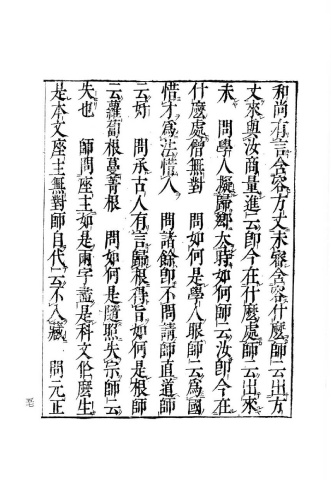 和尚有言含容方丈未審含容什麼師云出方
丈來與汝商量進云即今在什麼處師云出來
未　問學人擬歸鄉去時如何師云汝即今在
什麼處僧無對　問如何是學人眼師云為國
惜才為法惜人　問諸餘即不問請師直道師
云好　問承古人有言歸根得旨如何是根師
云蘿蔔根蔓菁根　問如何是隨照失宗師云
失也　師問座主如是兩字盡是科文作麼生
是本文座主無對師自代云不入藏　問元正